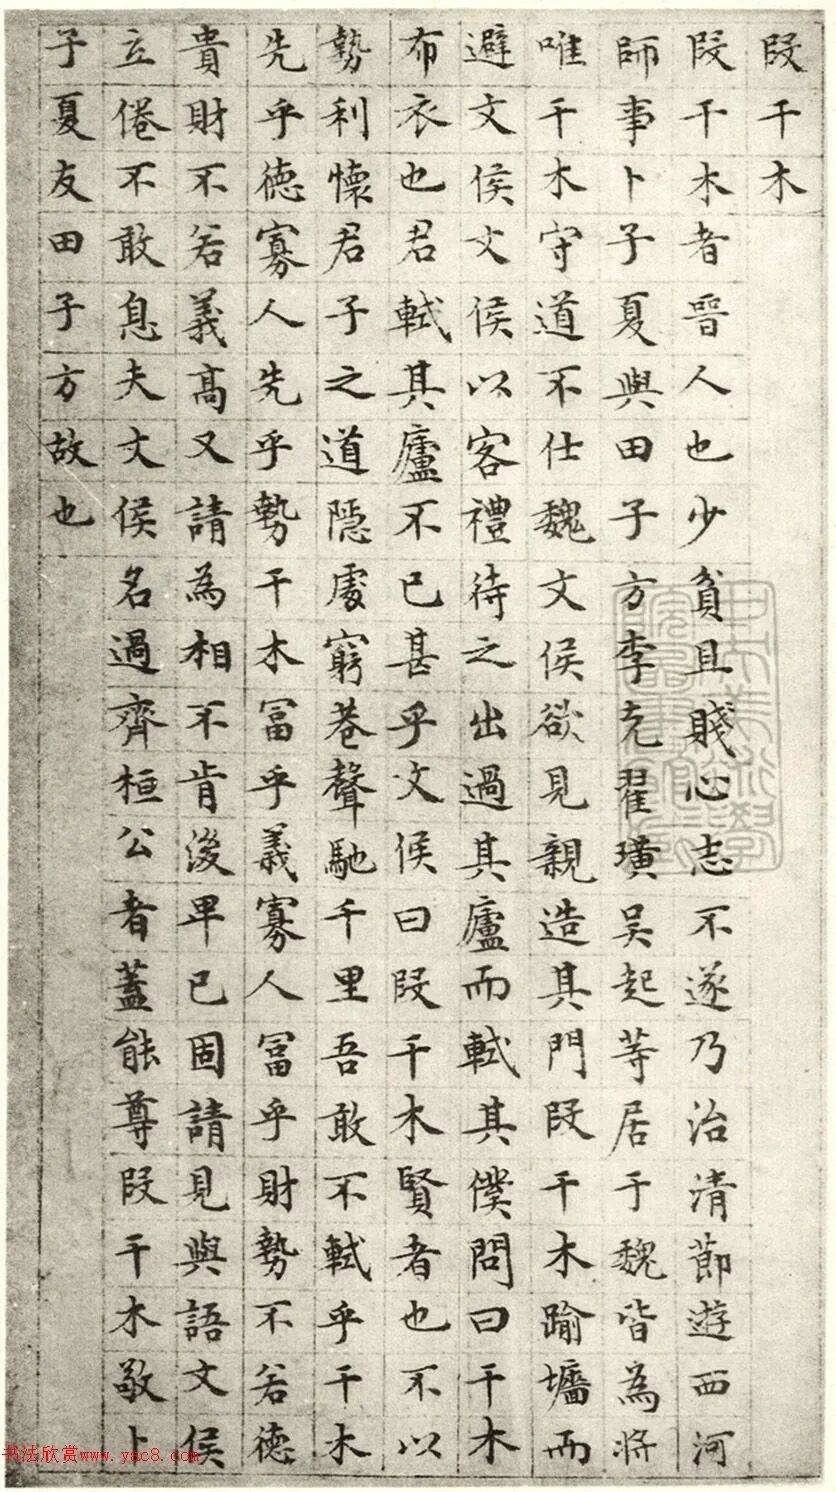 段干木
段干木者晉人也少貧且賤心志不遂乃治清節遊西河
師事卜子夏與田子方李克翟璜吳起等居于魏皆為將
唯干木守道不仕魏文侯欲見親造其門段干木踰墻而
避文侯文侯以客禮待之出過其廬而軾其僕問曰干木
布衣也君軾其廬不已甚乎文侯曰段干木賢者也不以
勢利懷君子之道隱處窮巷聲馳千里吾敢不軾乎干木
先乎德寡人先乎勢干木冨乎義寡人冨乎財勢不若德
貴財不若義高又請為相不肯後卑已固請見與語文侯
立倦不敢息夫文侯名過齊桓公者蓋能尊段干木敬卜
子夏友田子方故也
中央美術學
院圖書館藏
书法欣赏www.yac8.com